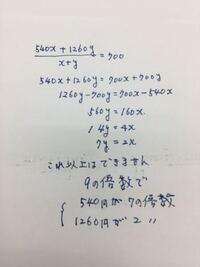 540x + 1260y / x+y = 700
540x + 1260y = 700x + 700y
1260y - 700y = 700x - 540x
560y = 160x
14y = 4x
7y = 2x
これ以上はできません
9の倍数で
540円が7の倍数
1260円が2 〃